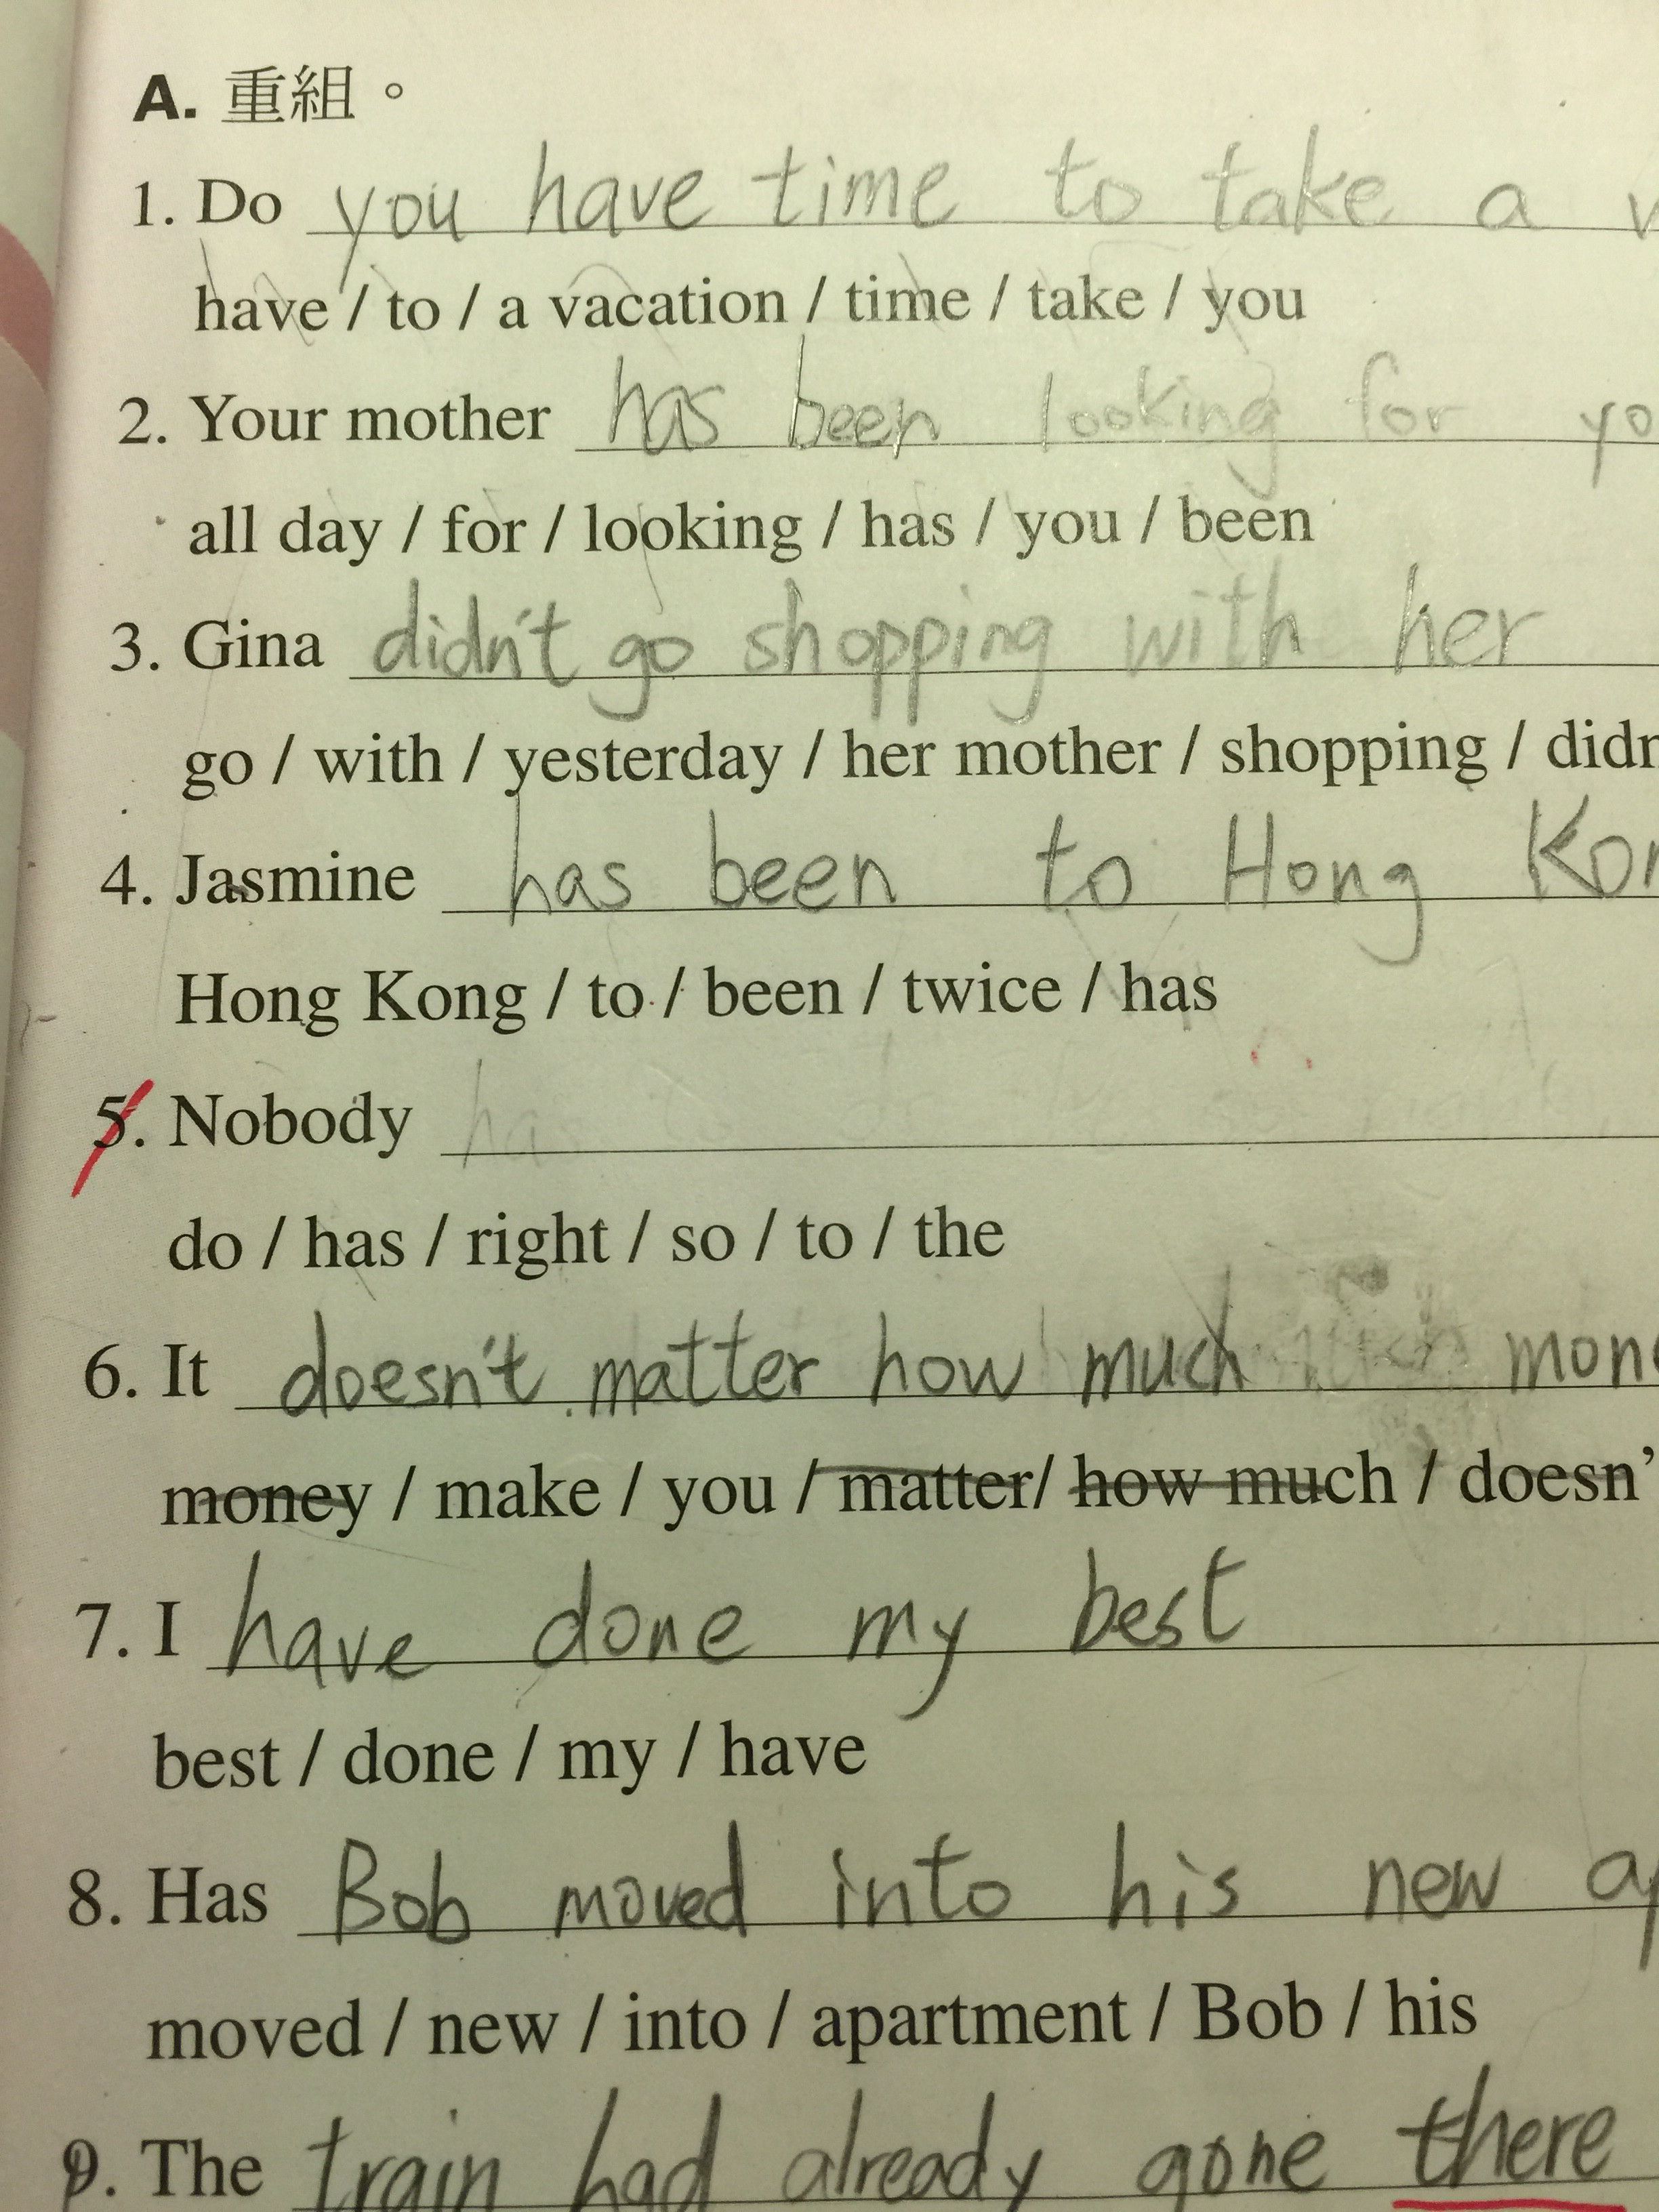 A. 重組。
1. Do you have time to take a
have / to / a vacation / time / take / you
2. Your mother has been looking for yo
all day / for / looking / has / you / been
3. Gina didn't go shopping with her
go / with / yesterday / her mother / shopping / didn
4. Jasmine has been to Hong Kon
Hong Kong / to / been / twice / has
5. Nobody
do / has / right / so / to / the
6. It doesn't matter how much mone
money / make / you / matter / how much / doesn'
7. I have done my best
best / done / my / have
8. Has Bob moved into his new ap
moved / new / into / apartment / Bob / his
9. The train had already gone there